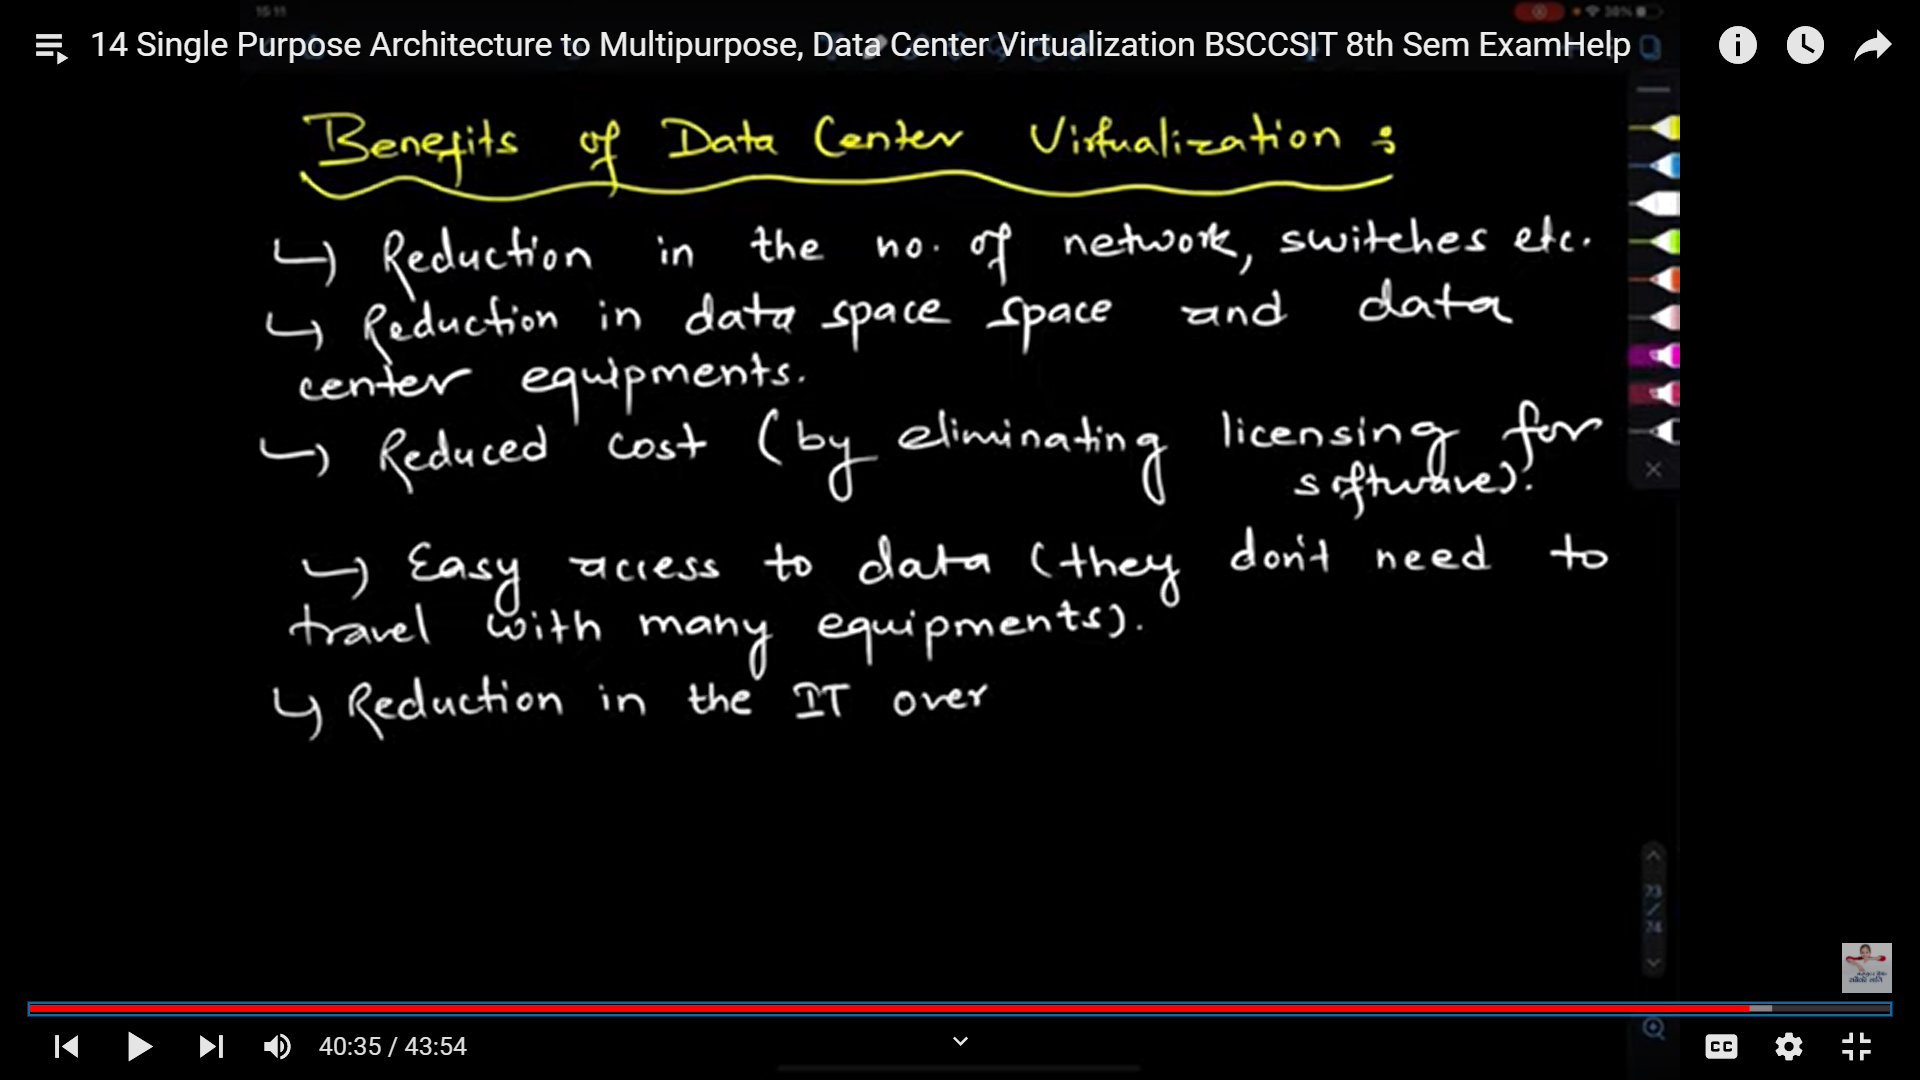 15:11
38%
14 Single Purpose Architecture to Multipurpose, Data Center Virtualization BSCCSIT 8th Sem ExamHelp
Benefits of Data Center Virtualization :
↳ Reduction in the no. of network, switches etc.
↳ Reduction in data space space and data
center equipments.
↳ Reduced cost (by eliminating licensing for
software).
↳ Easy access to data (they don't need to
travel with many equipments).
↳ Reduction in the IT over
23
/
24
40:35 / 43:54
CC